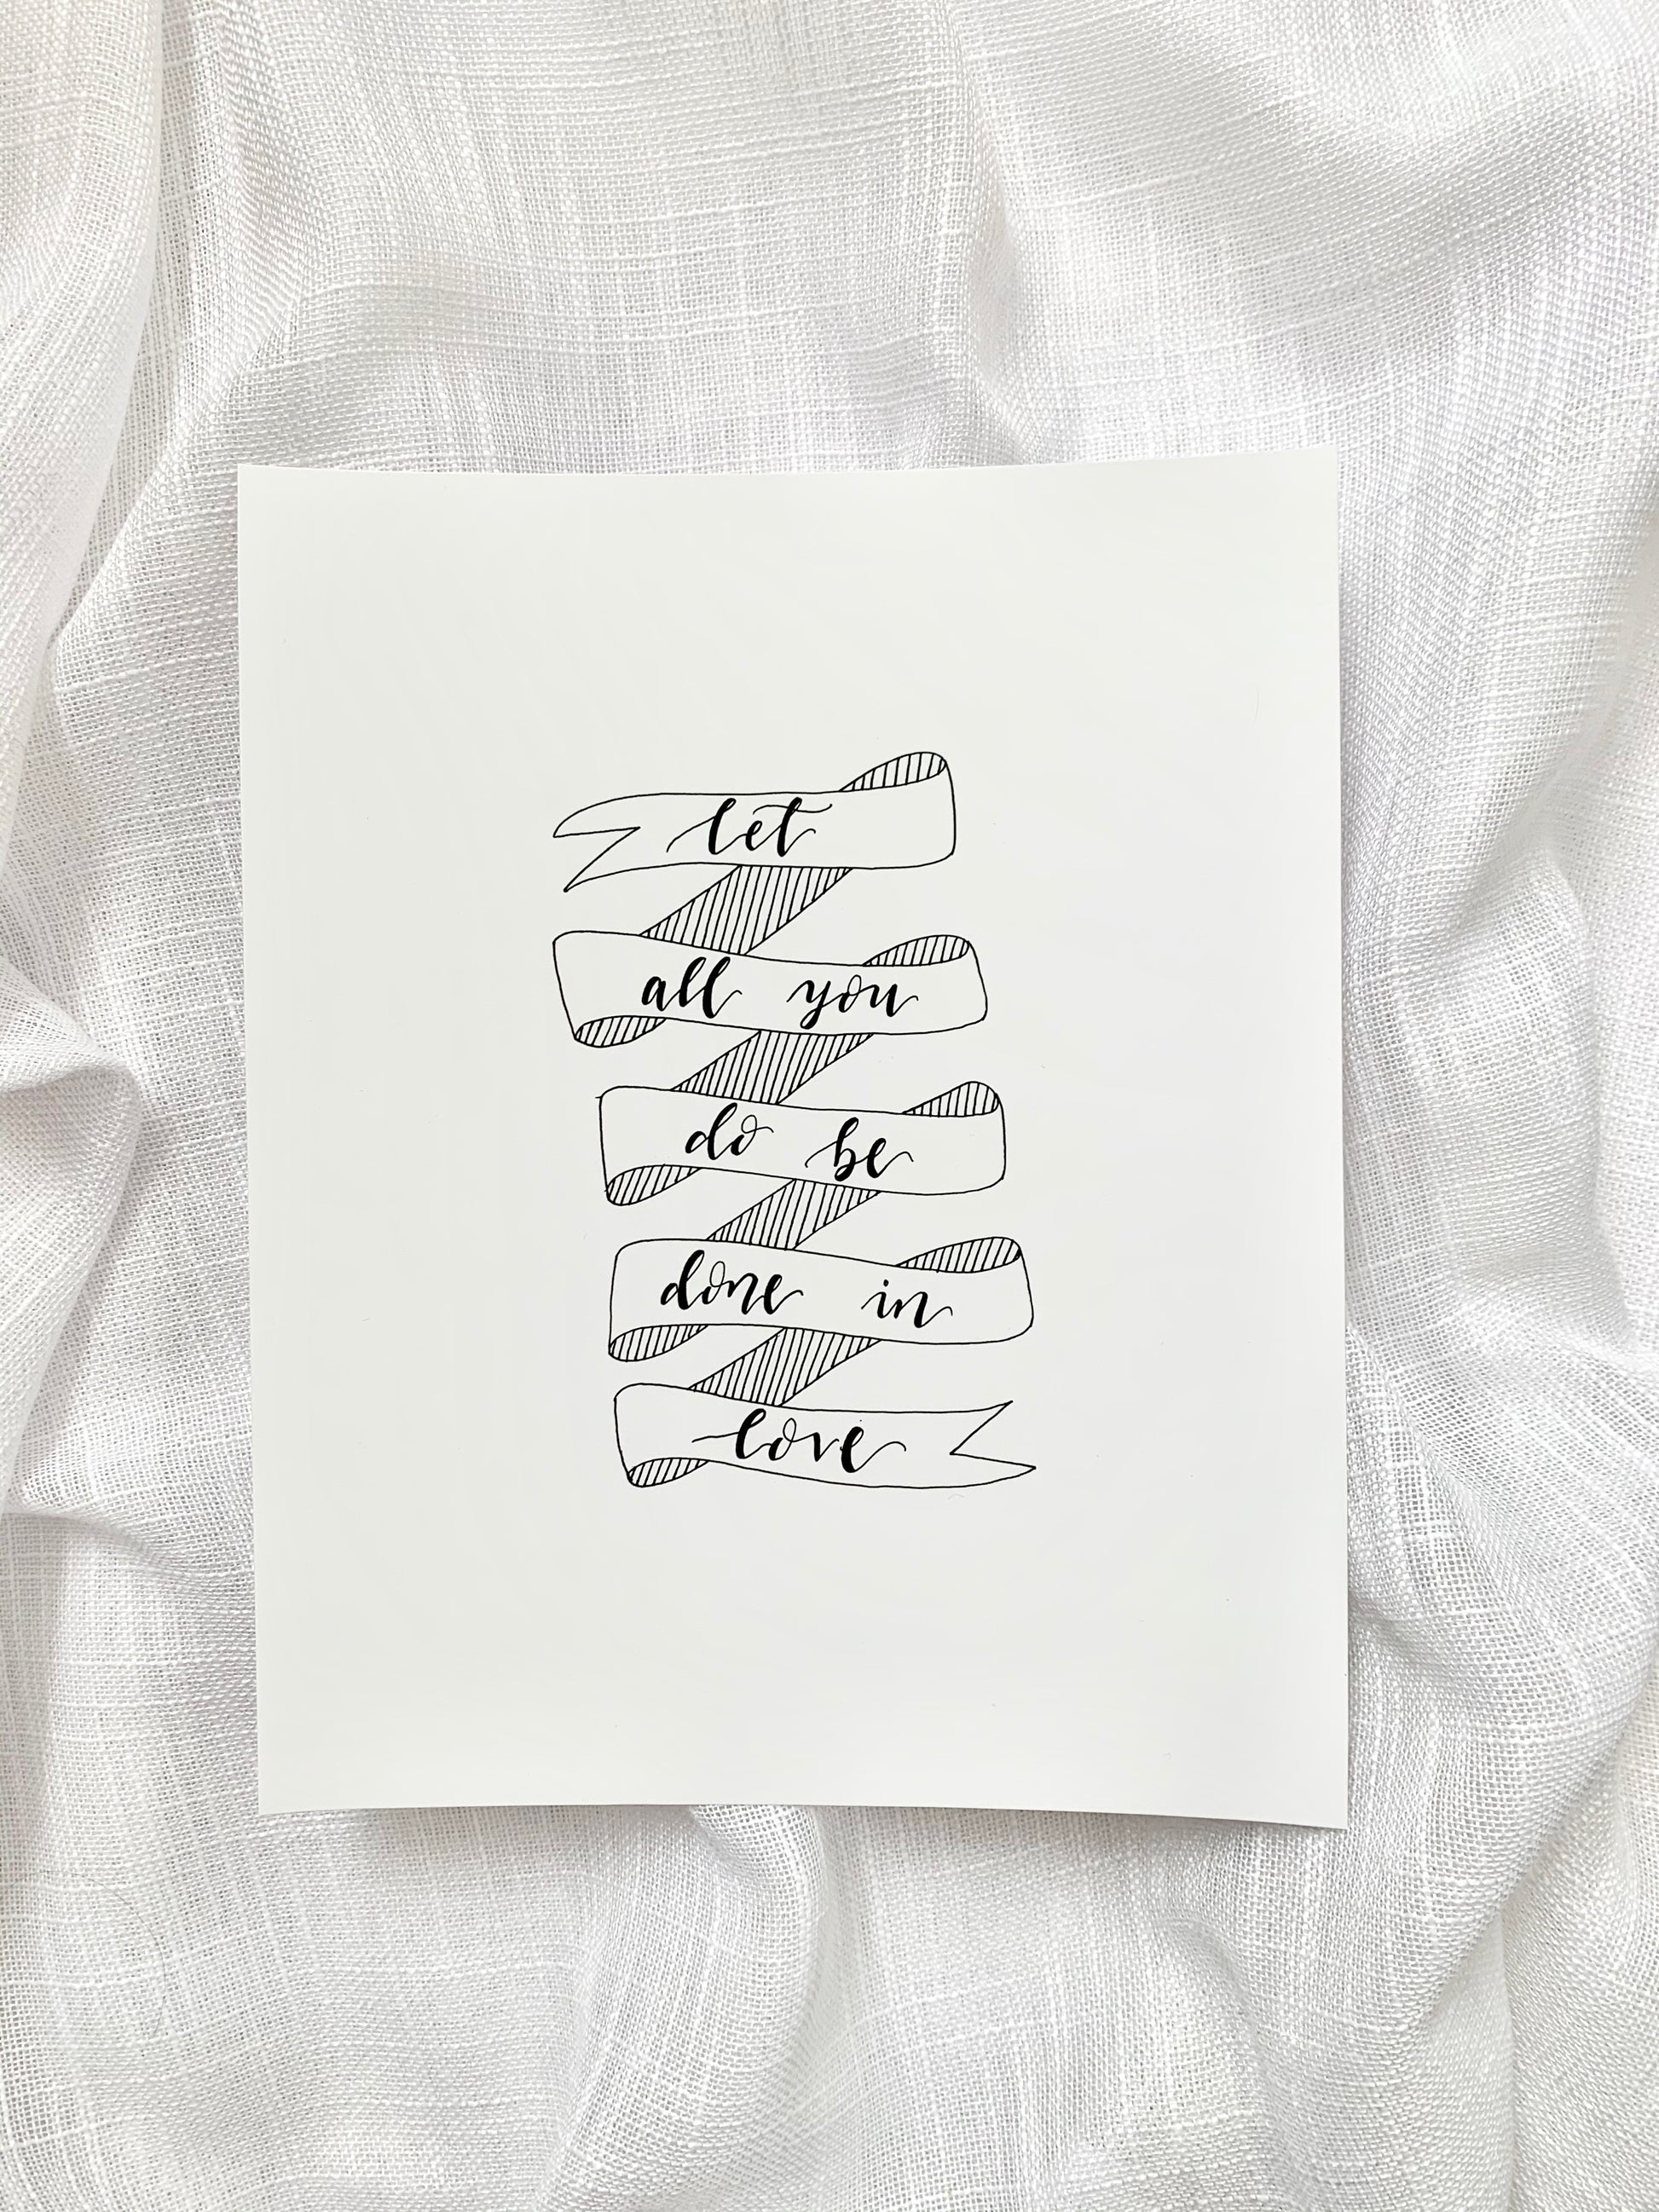 let
all you
do be
done in
love